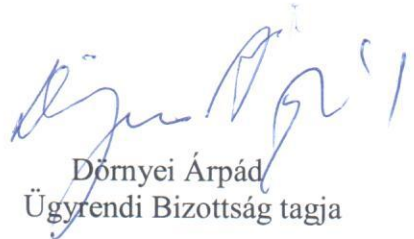 Dörnyei Árpád
Ügyrendi Bizottság tagja